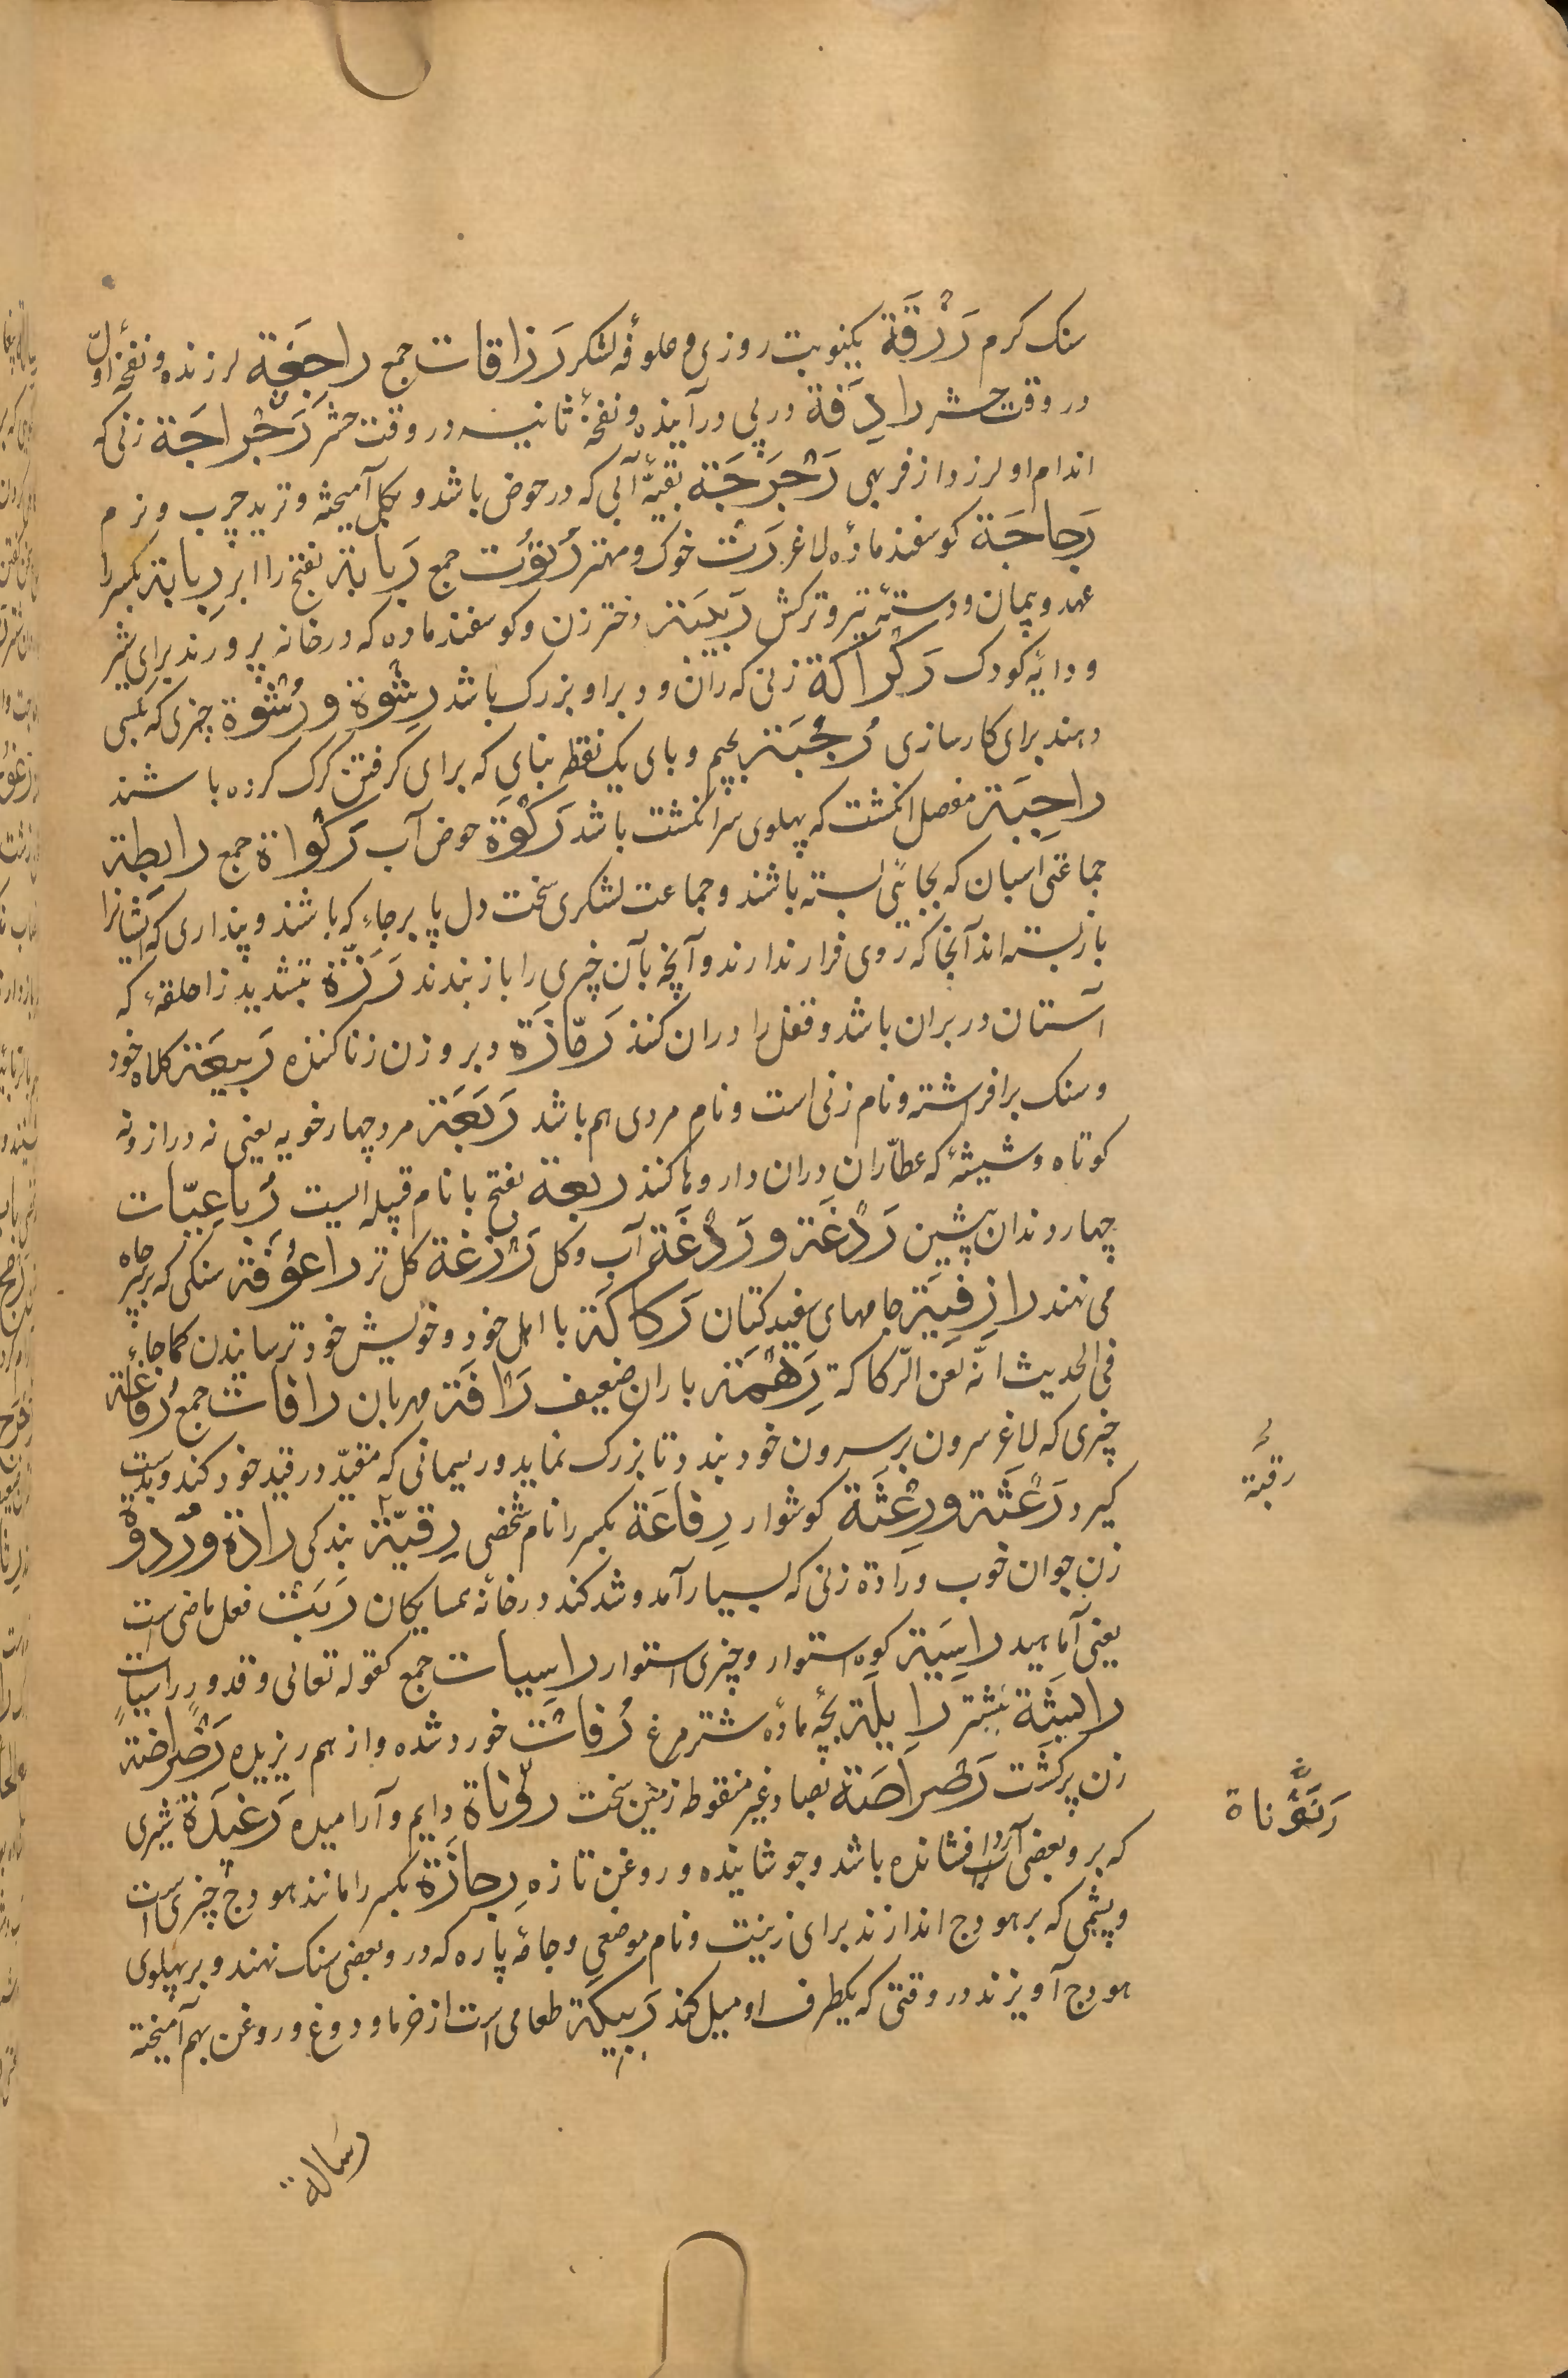 سنک کرم رَزْقَة یکنوبت روزی و علوفهٔ لشکر رَزَاقات جمع راجِفَة لرزنده و نفخهٔ اوّل
در وقت حشر رادِفَة در پی درآینده و نفخهٔ ثانیه در وقت حشر رَجْراجَة زنی که
اندام او لرزد از فربهی رَجْرَجَة بقیّهٔ آبی که در حوض باشد و بکل آمیخته و ترید چرب و نرم
رَجاجَة کوسفند مادهٔ لاغر رَتّ خوک و مهتر رُتُوت جمع رَبابة بفتح را ابر رِبابة بکسر را
عهد و پیمان و دستهٔ تیر و ترکش رَبیبَة دختر زن و کوسفند ماده که در خانه پرورند برای شیر
و دایهٔ کودک رَکْراکَة زنی که ران و دبر او بزرک باشد رِشْوَة و رُشْوَة چیزی که بکسی
دهند برای کارسازی رُجْبَة بجیم و بای یک نقطه بنای که برای کرفتن کرک کرده باشند
راجِبَة مفصل انکشت که پهلوی سر انکشت باشد رَکْوَة حوض آب رَکْواة جمع رابِطة
جماعتی اسبان که بجائی بسته باشند و جماعت لشکری سخت دل پا برجاء که باشند و پنداری که ایشانرا
باز بسته اند آنجا که روی فرار ندارند و آنچه بآن چیزی را باز بندند رَزَّة بتشدید زا حلقهٔ که
آستان در بران باشد و قفل را دران کنند رَمّازَة دبر و زن زنا کننده رَبیعَة کلاه خود
و سنک برافرشته و نام زنی است و نام مردی هم باشد رَبَعَة مرد چهار خویه یعنی نه دراز و نه
کوتاه و شیشهٔ که عطّاران دران داروها کنند ربعة بفتح با نام قبیله ایست رُباعِیّات
چهار دندان پیشین رَدْغَة و رَدَغَة آب و کل رَزْغَة کل تر راعُوفَة سنکی که بر سر چاه
می نهند رازِقِیَة جامهای سفید کتان رَکاکَة با اهل خود و خویش خود ترسانیدن کما جاء
فی الحدیث انّه لعن الرّکاکة رِهْمَة باران ضعیف رَافَة مهربان رافات جمع رُفاعَة
چیزی که لاغر سرون بر سرون خود بندد تا بزرک نماید و ریسمانی که مقیّد در قید خود کند و بدست
کیرد رَعْثَة و رِعْثَة کوشوار رِفاعَة بکسر را نام شخصی رِقیّة بندکی رادَة و رُدوة
زن جوان خوب و رادَة زنی که بسیار آمد و شد کند در خانهٔ همسایکان رَبَتْ فعل ماضی است
یعنی آماسید راسِیَة کوه استوار و چیزی استوار راسِیات جمع کقوله تعالی و قدورٍ راسیاتٍ
رابِیَة پشته رایلَة بچهٔ مادهٔ شتر مرغ رُفات خورد شده و از هم ریزیده رَضْراضة
زن پر کشت رَصْراصَة بصاد غیر منقوطه زمین سخت رنّوناة دایم و آرامیده رَغیدَة شیری
که بر و بعضی آرد را افشانده باشد و جوشانیده و روغن تازه رِجازَة بکسر را مانند هودج چیزی است
و پشمی که بر هودج اندازند برای زینت و نام موضعی و جامهٔ پاره که درو بعضی سنک نهند و بر پهلوی
هودج آویزند در وقتی که یکطرف او میل کند رَبیکَة طعامی است از خرما و دوغ و روغن بهم آمیخته
رقبة
رَنَوْناة
رسالة